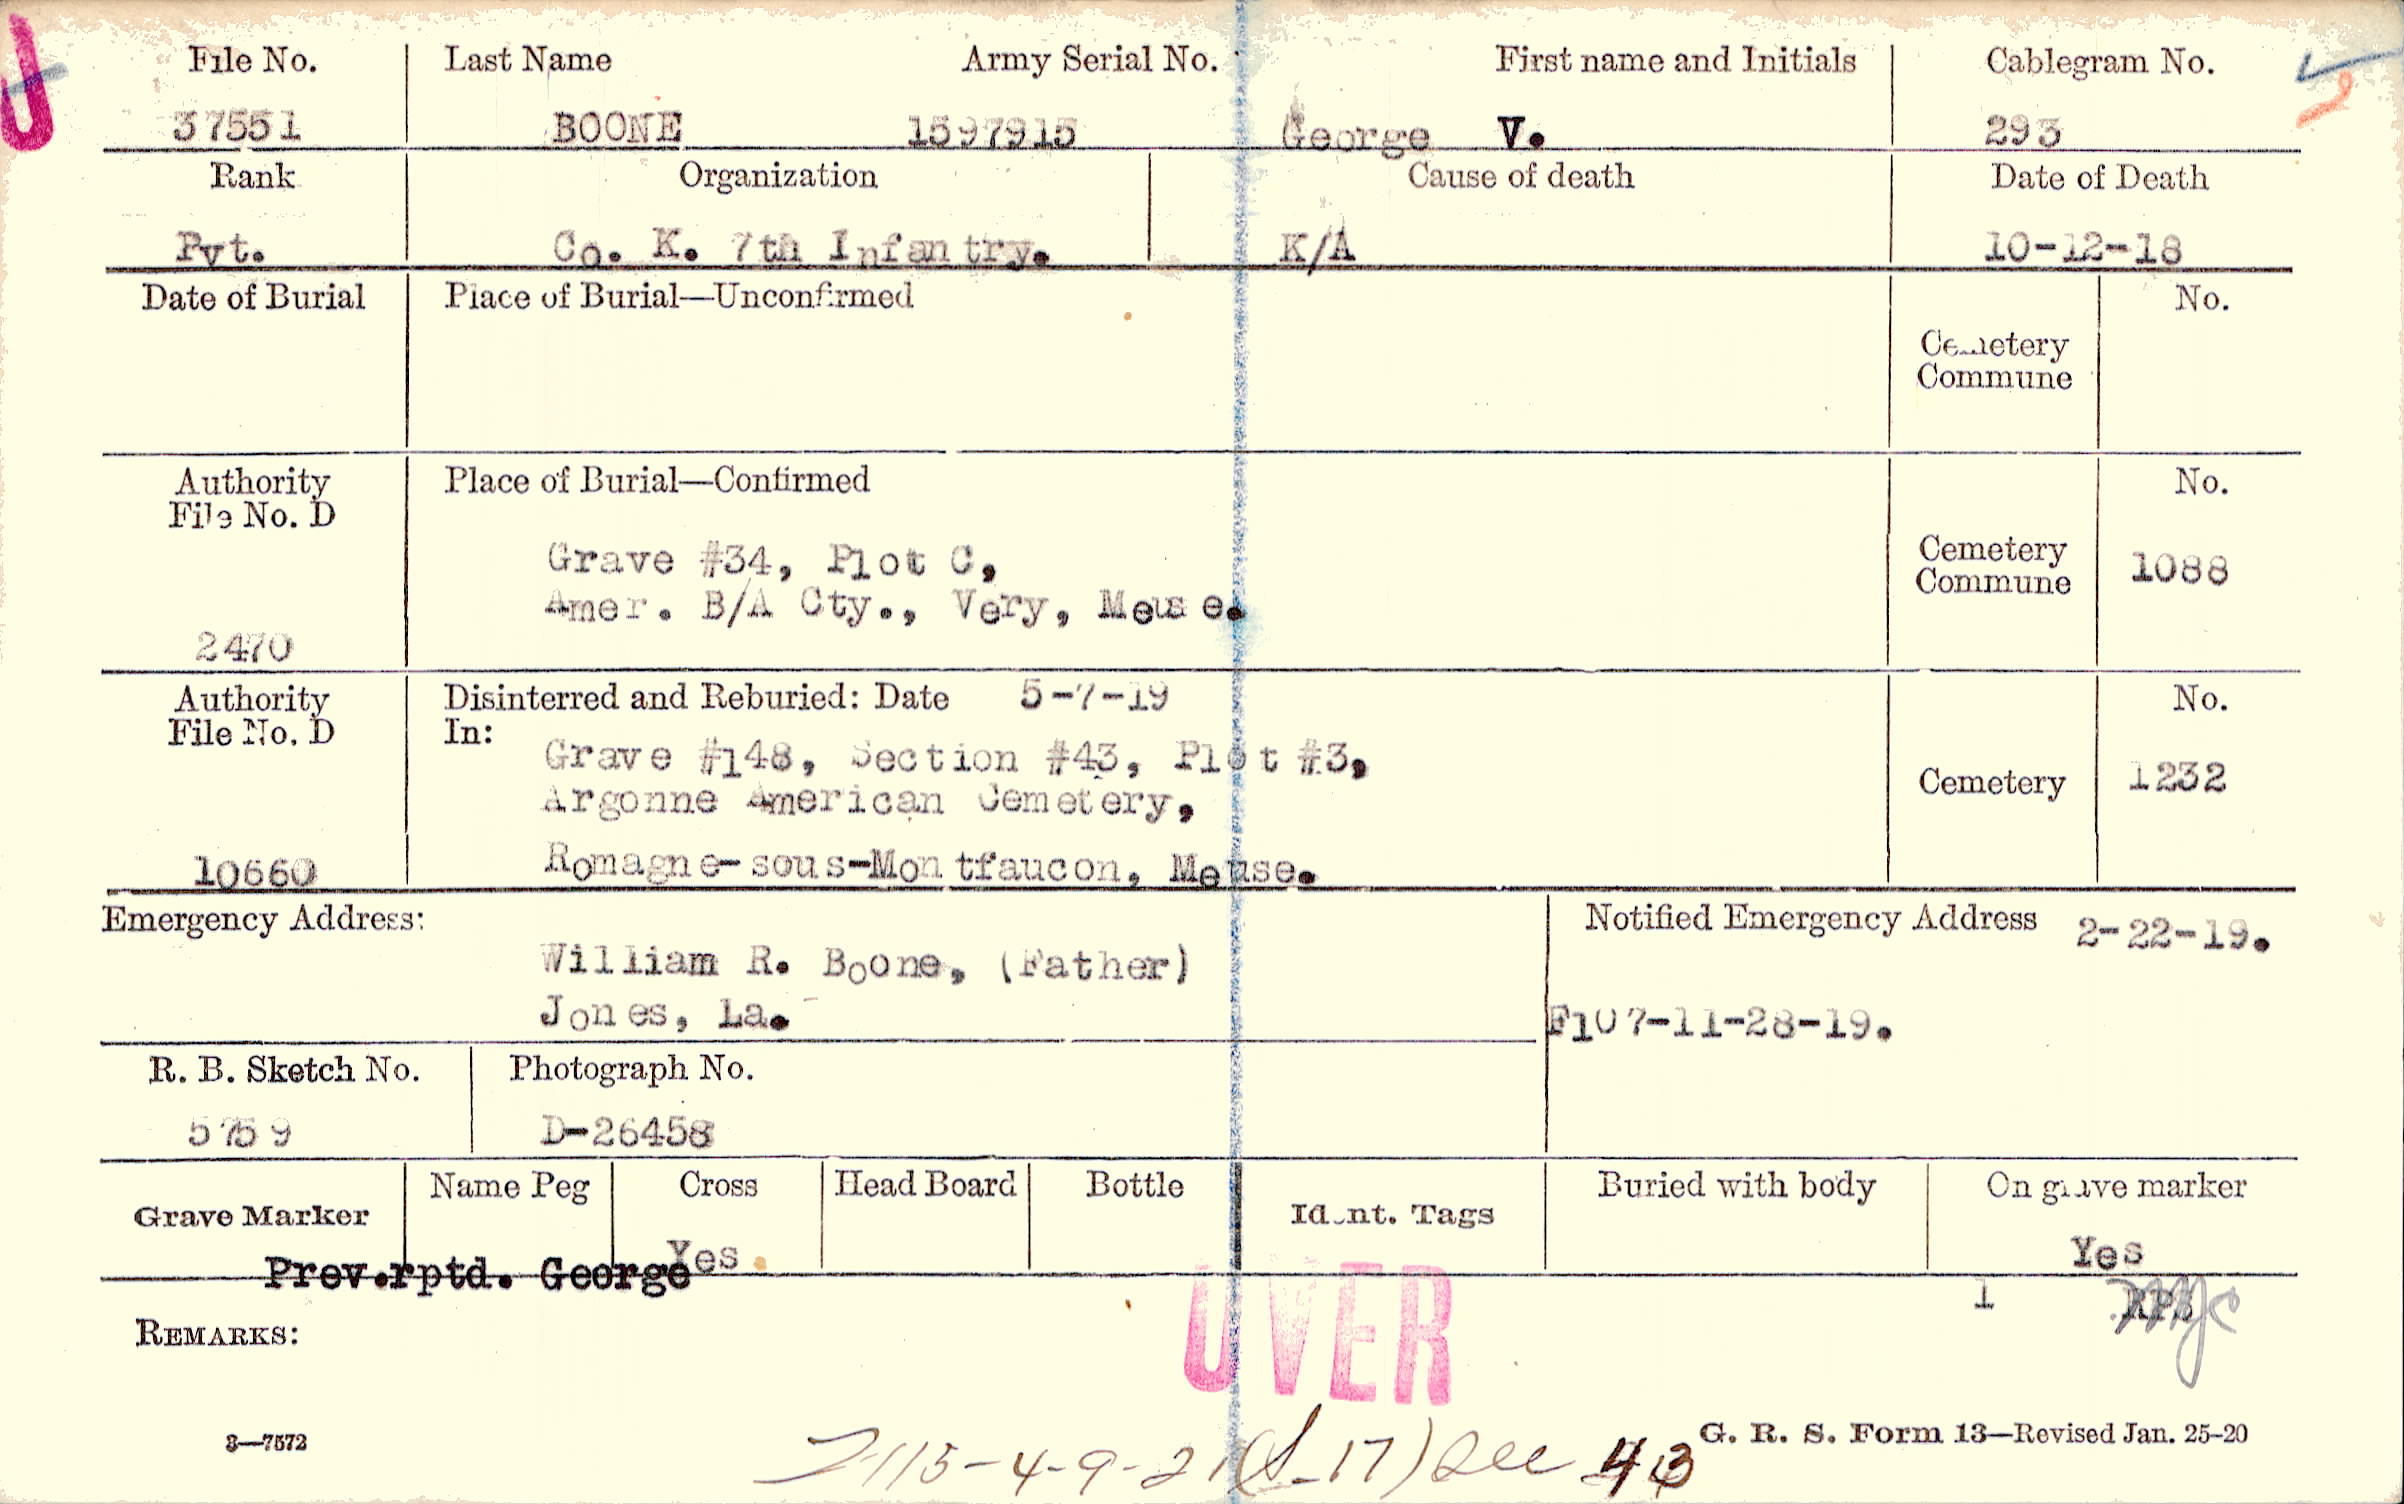 File No. Last Name Army Serial No. First name and Initials Cablegram No.
37551 BOONE 1597915 George V. 293
Rank Organization Cause of death Date of Death
Pvt. Co. K. 7th Infantry. K/A 10-12-18
Date of Burial Place of Burial—Unconfirmed No.
Cemetery
Commune
Authority Place of Burial—Confirmed No.
File No. D
Grave #34, Plot C, Cemetery
Commune 1088
Amer. B/A Cty., Very, Meuse.
2470
Authority Disinterred and Reburied: Date 5-7-19 No.
File No. D In:
Grave #148, Section #43, Plot #3,
Cemetery 1232
Argonne American Cemetery,
10660 Romagne-sous-Montfaucon, Meuse.
Emergency Address: Notified Emergency Address 2-22-19.
William R. Boone, (Father)
Jones, La. F107-11-28-19.
R. B. Sketch No. Photograph No.
5759 D-26458
Grave Marker Name Peg Cross Head Board Bottle Ident. Tags Buried with body On grave marker
Yes Yes
Prev.rptd. George
1 RPS
REMARKS:
OVER
3—7572 G. R. S. Form 13—Revised Jan. 25-20
115-4-9-21 (S-17) See 43